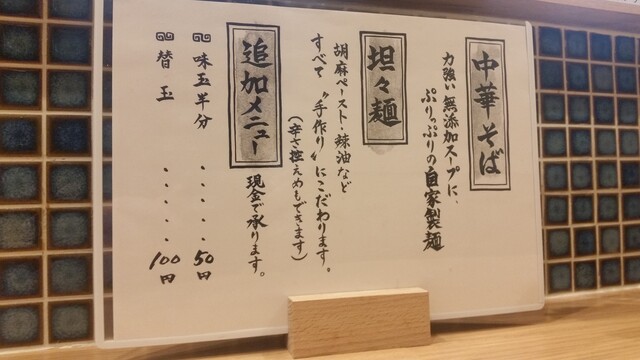 中華そば
力強い無添加スープに、
ぷりっぷりの自家製麺
坦々麺
胡麻ペースト・辣油など
すべて〝手作り〟にこだわります。
(辛さ控えめもできます)
追加メニュー
現金で承ります。
味玉半分 ・・・・・ 50円
替玉 ・・・・・ 100円